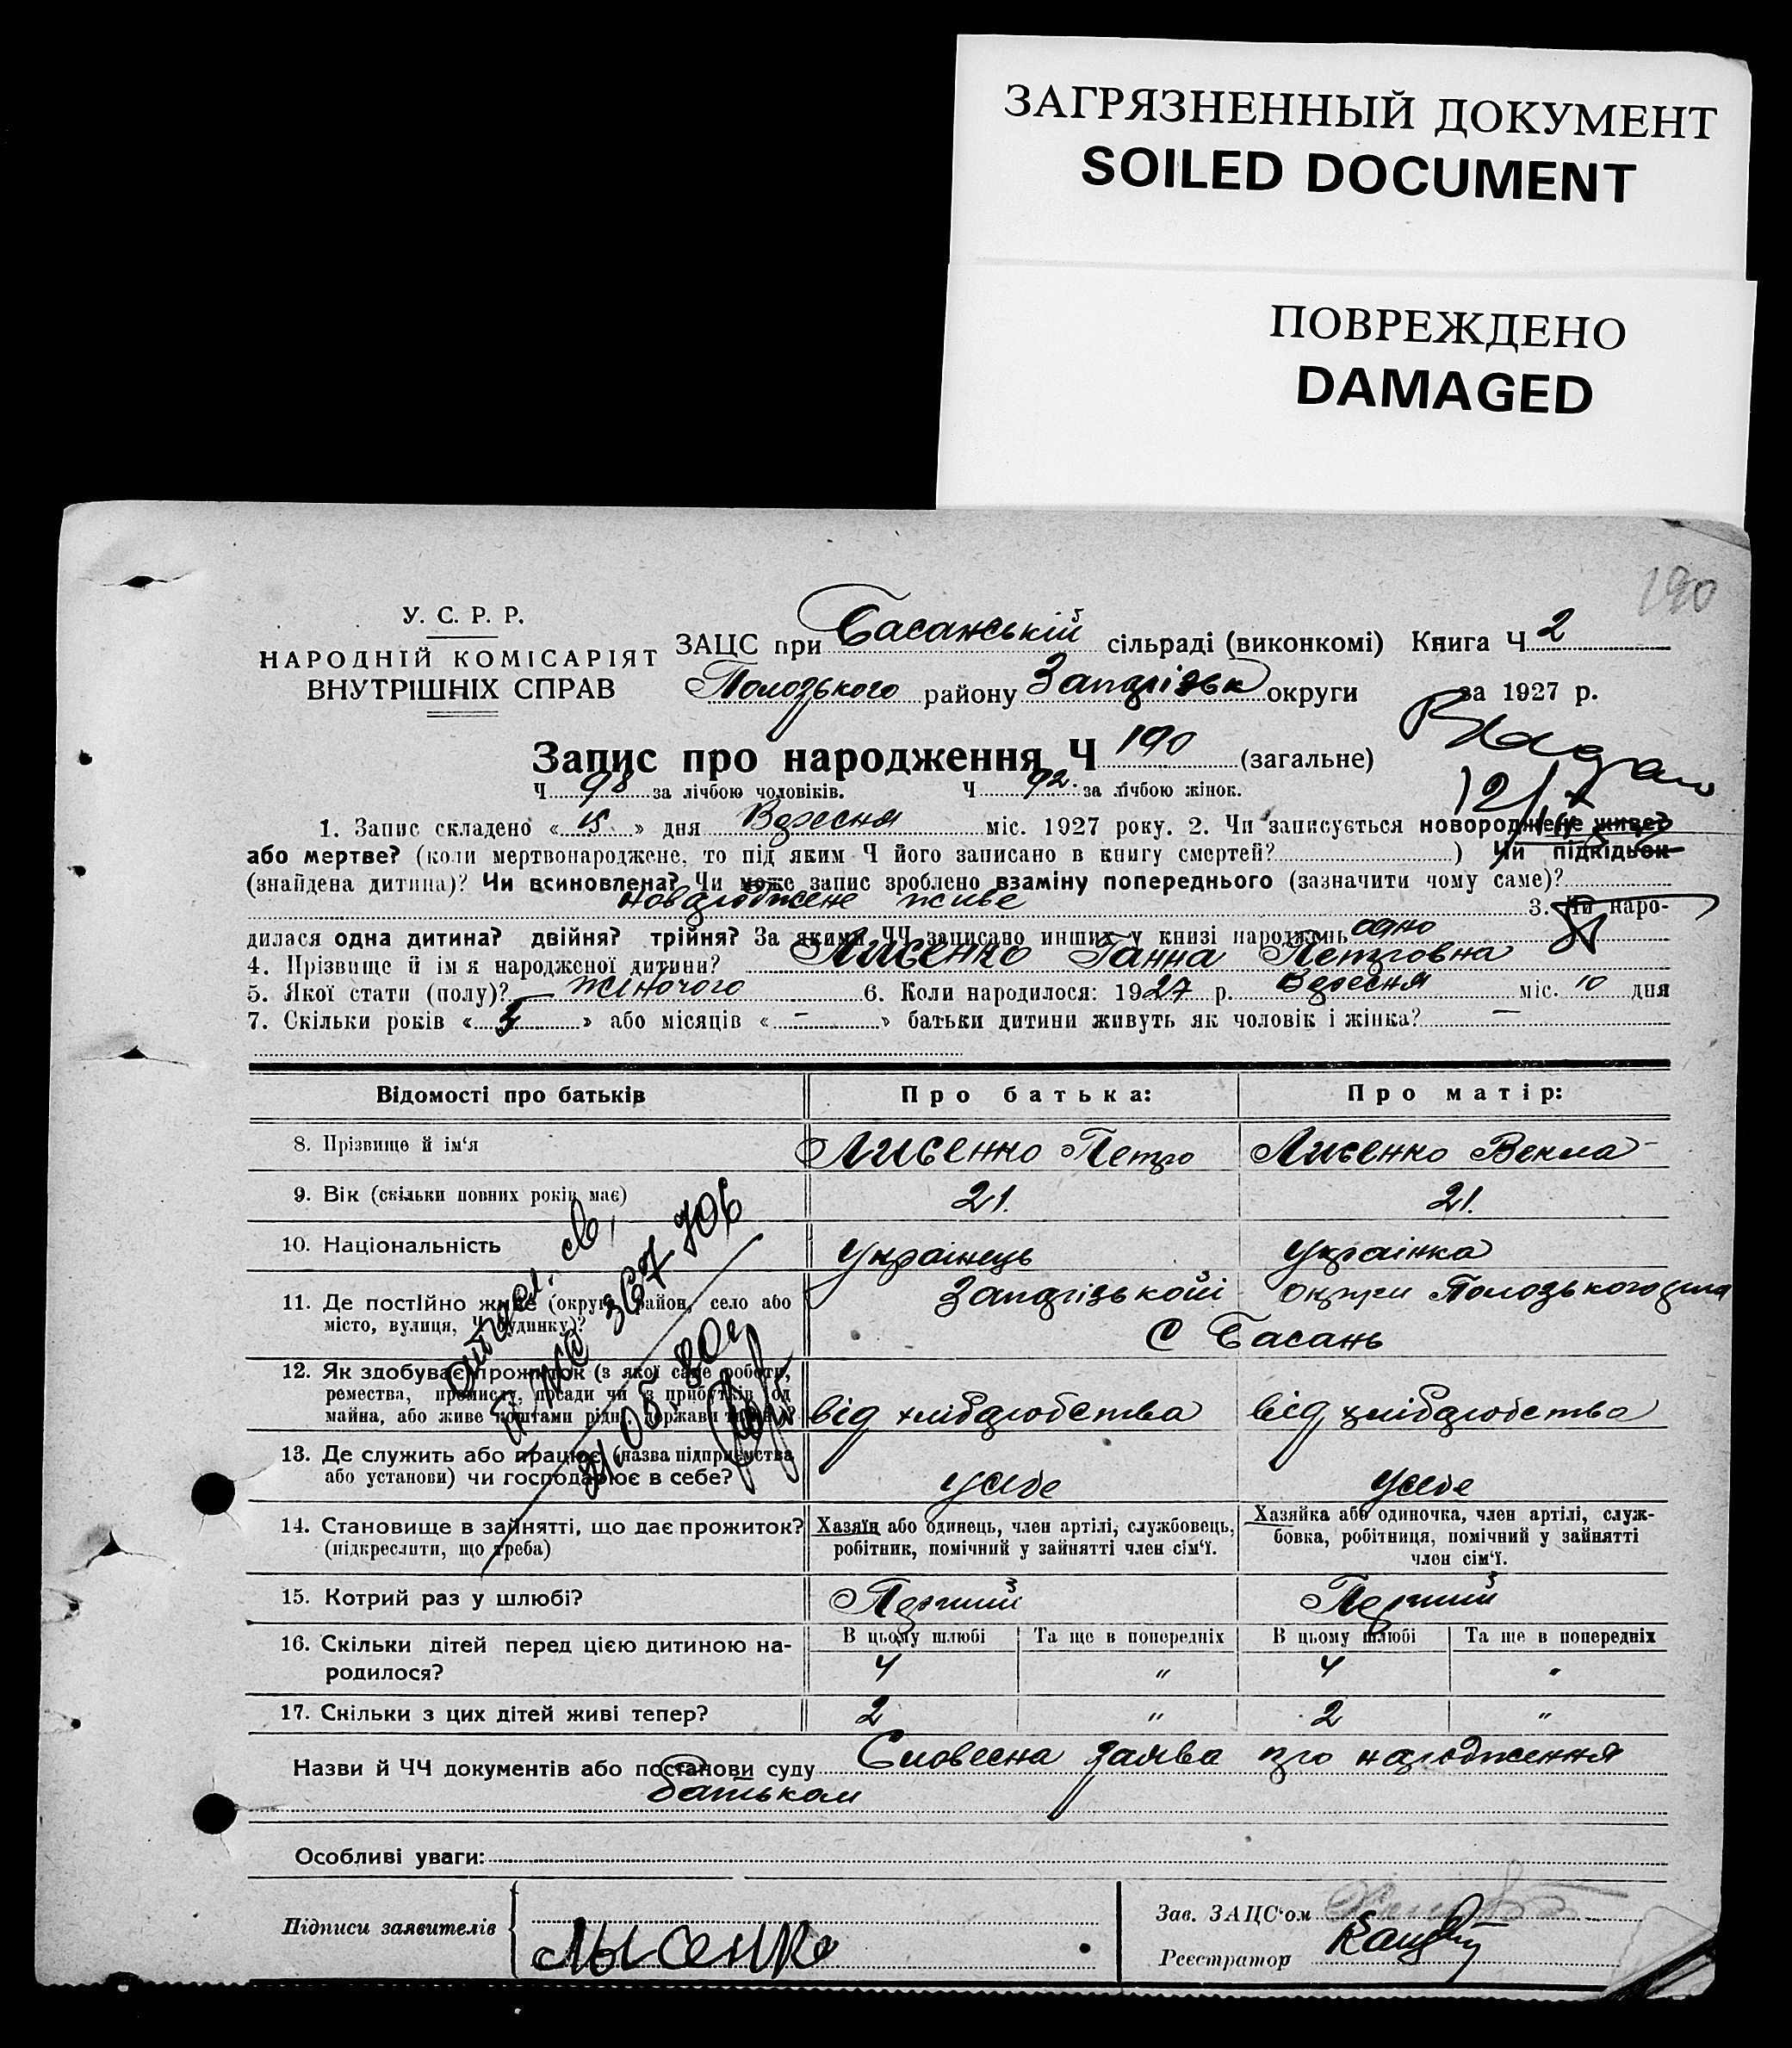 ЗАГРЯЗНЕННЫЙ ДОКУМЕНТ
SOILED DOCUMENT
ПОВРЕЖДЕНО
DAMAGED
190
У. С. Р. Р.
НАРОДНІЙ КОМІСАРІЯТ
ВНУТРІШНІХ СПРАВ
ЗАЦС при Басанській сільраді (виконкомі) Книга Ч 2
Полозького району Запорізьк округи за 1927 р.
Запис про народження Ч 190 (загальне)
Ч 98 за лічбою чоловіків. Ч 92. за лічбою жінок.
1. Запис складено « 15 » дня Вересня міс. 1927 року. 2. Чи записується новороджене живе?
або мертве? (коли мертвонароджене, то під яким Ч його записано в книгу смертей? ) Чи підкідьок
(знайдена дитина)? Чи всиновлена? Чи може запис зроблено взаміну попереднього (зазначити чому саме)?
новороджене живе 3. Чи наро-
дилася одна дитина? двійня? трійня? За якими ЧЧ записано инших у книзі народжень одно
4. Прізвище й ім'я народженої дитини? Лисенко Ганна Петровна
5. Якої стати (полу)? Жіночого 6. Коли народилося: 1927 р. Вересня міс. 10 дня
7. Скільки років « » або місяців « - » батьки дитини живуть як чоловік і жінка? -
Відомості про батьків Про батька: Про матір:
8. Прізвище й ім'я Лисенко Петро Лисенко Векла
9. Вік (скільки повних років має) 21. 21.
10. Національність Українець Українка
11. Де постійно живе (округа, район, село або Запорізькоїі округи Полозького
місто, вулиця, Ч будинку)? С Басань
12. Як здобуває прожиток (з якої саме роботи,
ремества, промислу, посади чи з прибутків од
майна, або живе коштами рідні, держави від хліборобства від хліборобства
13. Де служить або працює (назва підприємства
або установи) чи господарює в себе? Усебе Усебе
14. Становище в зайнятті, що дає прожиток? Хазяїн або одинець, член артілі, службовець, Хазяйка або одиночка, член артілі, служ-
(підкреслити, що треба) робітник, помічний у зайнятті член сім'ї. бовка, робітниця, помічний у зайнятті
член сім'ї.
15. Котрий раз у шлюбі? Перший Перший
16. Скільки дітей перед цією дитиною на- В цьому шлюбі Та ще в попередніх В цьому шлюбі Та ще в попередніх
родилося? 4 " 4 "
17. Скільки з цих дітей живі тепер? 2 " 2 "
Назви й ЧЧ документів або постанови суду Словесна заява про народження
батьком
Особливі уваги:
Підписи заявителів Лысенко
Зав. ЗАЦС'ом
Реєстратор